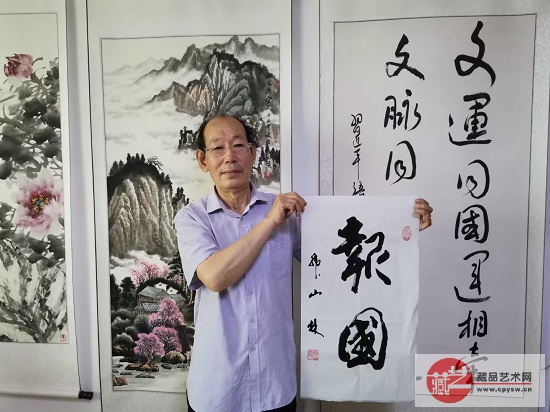 文運同國運相
文脉同
習近平
報國
藏品艺术网
www.cpysw.cn